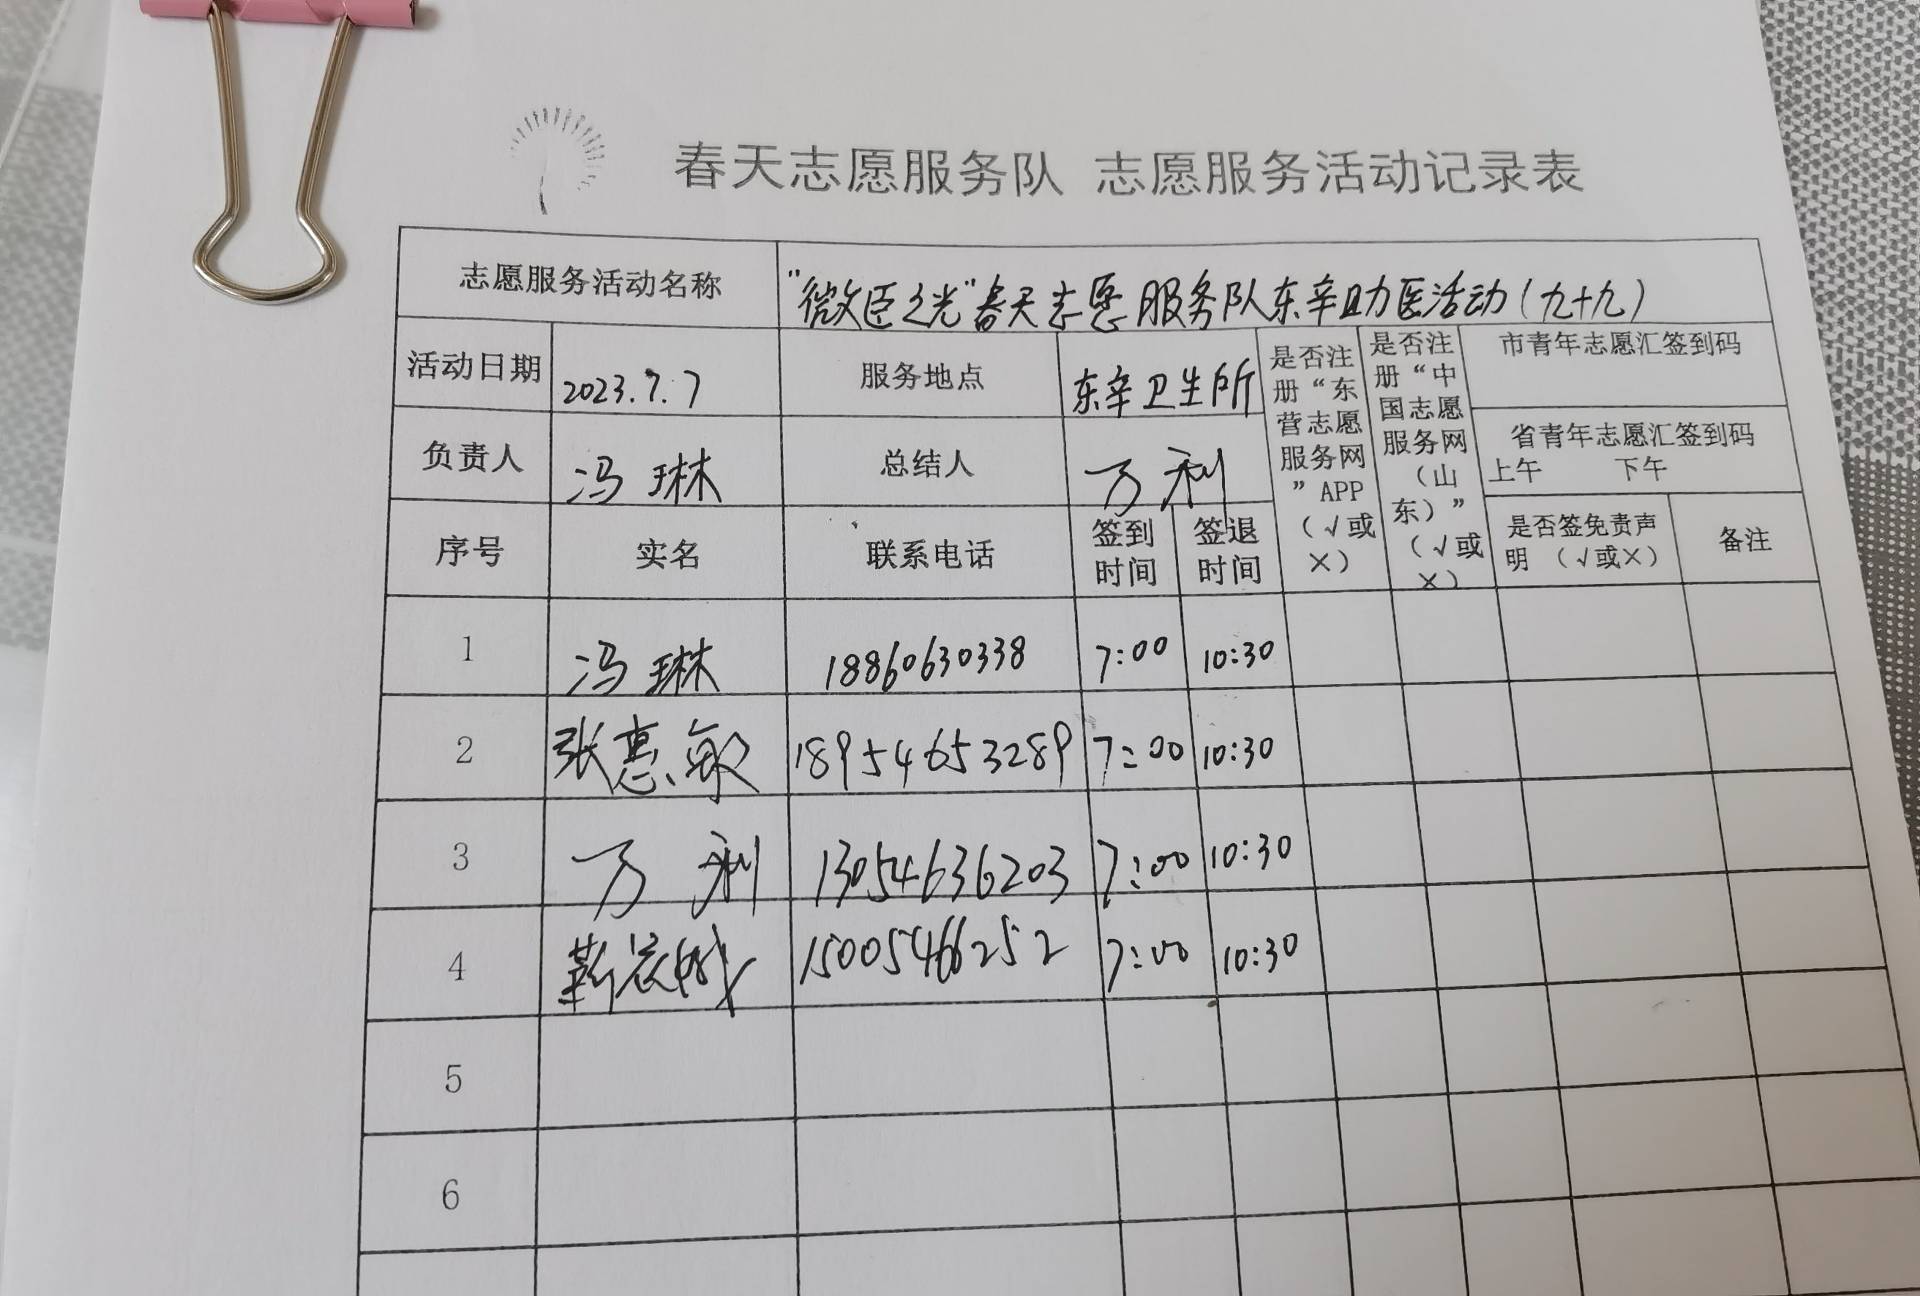 春天志愿服务队 志愿服务活动记录表
志愿服务活动名称 "微臣之光"春天志愿服务队东辛助医活动(九十九)
活动日期 2023.7.7 服务地点 东辛卫生所
是否注册“东营志愿服务网”APP（√或×）
是否注册“中国志愿服务网（山东）”（√或×）
市青年志愿汇签到码
省青年志愿汇签到码
上午 下午
负责人 冯琳 总结人 万利
序号 实名 联系电话 签到时间 签退时间 是否签免责声明 （√或×） 备注
1 冯琳 18860630338 7:00 10:30
2 张惠敏 18954653289 7:00 10:30
3 万利 13054636203 7:00 10:30
4 15005466252 7:00 10:30
5
6